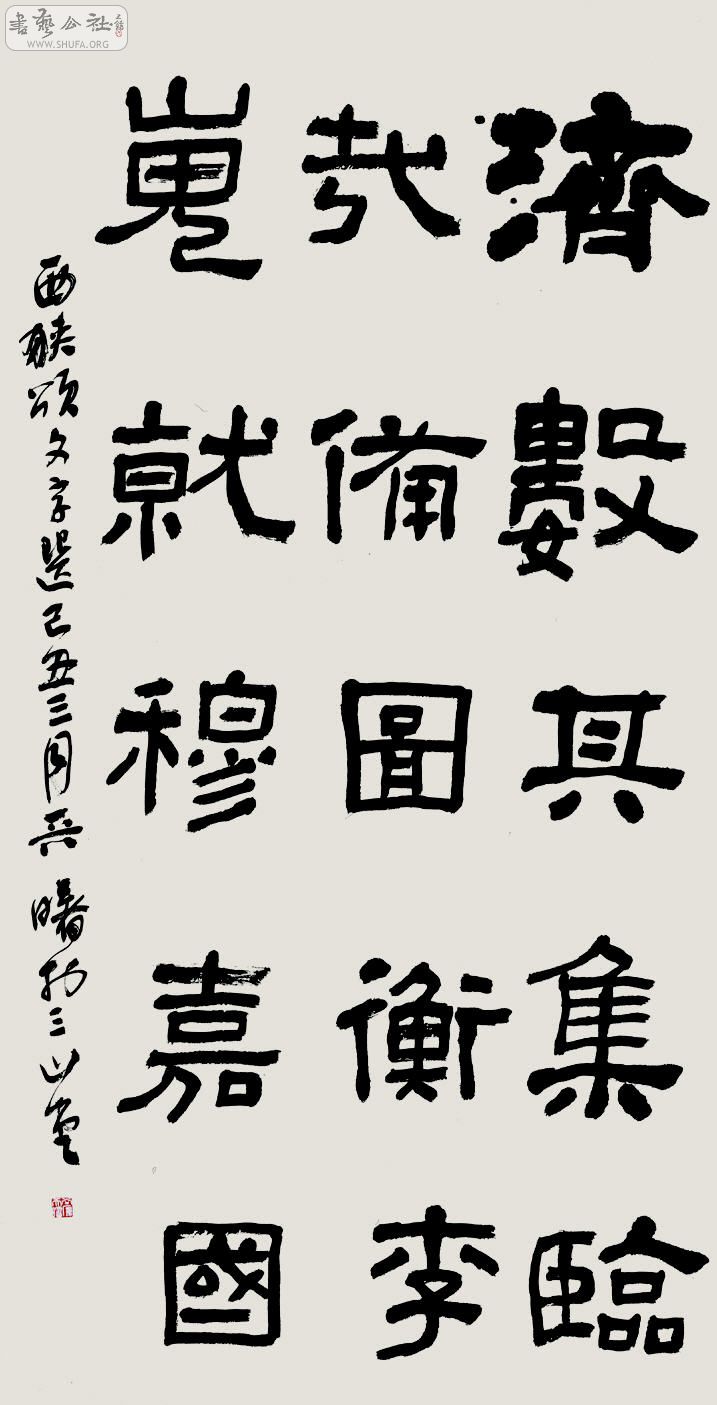 書藝公社
WWW.SHUFA.ORG
濟數其集臨
哉備圖衡李
嵬就穆嘉國
西狹頌文字選己丑三月吳曙於三山堂